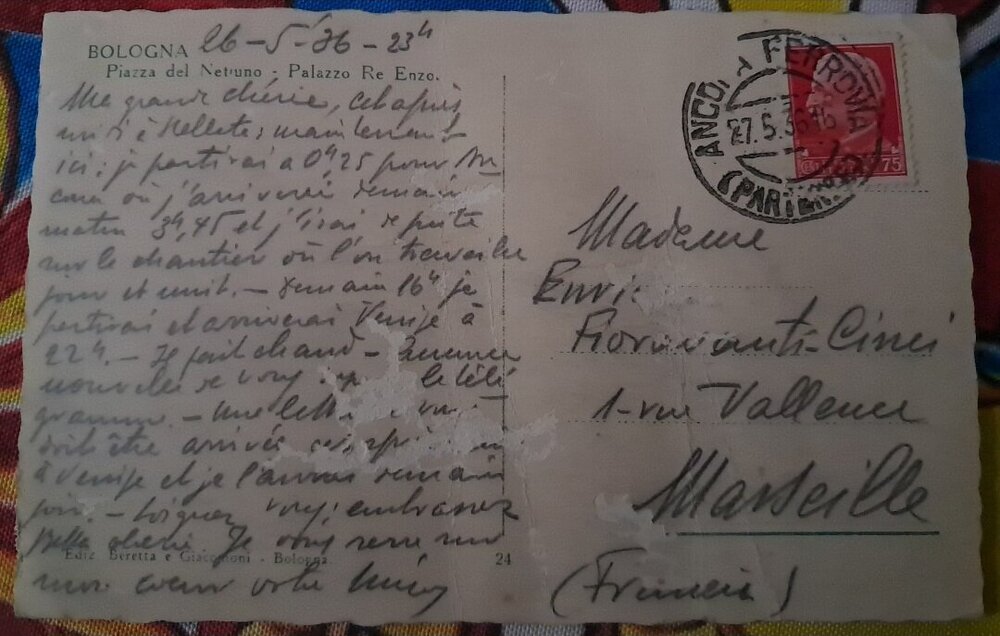 BOLOGNA 26-5-36 - 23h
Piazza del Nettuno - Palazzo Re Enzo.
Ma grande chérie, cet après
midi à Mellete; maintenant
ici: je partirai a 0h,25 pour An-
cona où j'arriverai demain
matin 3h,45 et j'irai de suite
sur le chantier où l'on travaille
jour et nuit. - Demain 16h je
partirai et arriverai Venise à
22h. - Il fait chaud - Aucune
nouvelle de vous le télé
gramme - Une lettre
doit être arrivée
à Venise et je l'aurai demain
soir. - Soignez vous; embrassez
Bella chérie Je vous serre sur
mon coeur votre
Ediz. Beretta e Giacomoni - Bologna
24
ANCONA FERROVIA
27.5.36 16
(PARTENZE)
75
Madame
Enri
Fioravanti-Cinci
1-rue Vallence
Marseille
(Francia)